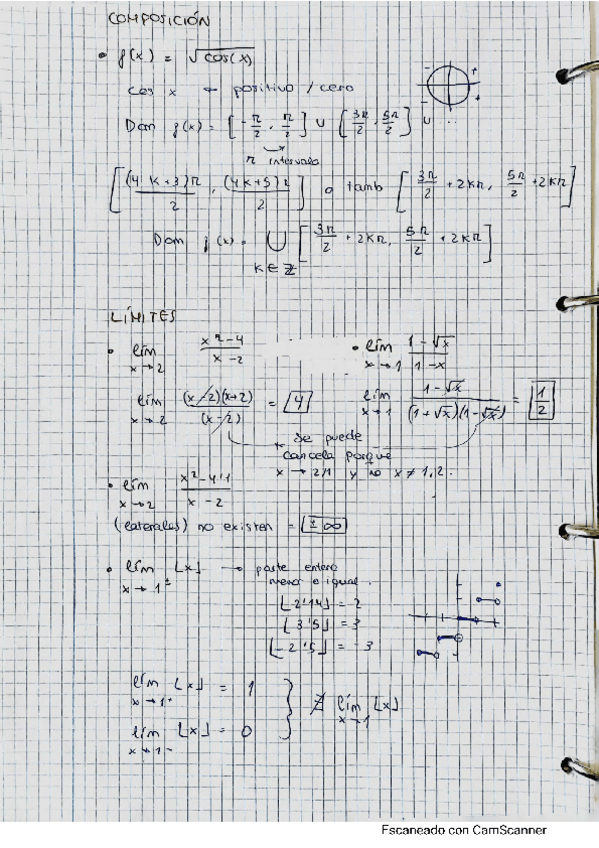 COMPOSICIÓN
• f(x) = √cos(x)
cos x ← positivo / cero
Dom f(x) = [-π/2, π/2] ∪ [3π/2, 5π/2] ∪ ..
π intervalo
[(4K+3)π/2, (4K+5)π/2] o tamb [3π/2 + 2Kπ, 5π/2 + 2Kπ]
Dom f(x) = ∪ K∈ℤ [3π/2 + 2Kπ, 5π/2 + 2Kπ]
LÍMITES
• lím x→2 x²-4 / x-2 • lím x→1 1-√x / 1-x
lím x→2 (x-2)(x+2) / (x-2) = 4 lím x→1 1-√x / (1+√x)(1-√x) = 1/2
Se puede
cancela porque
x → 2/1 y no x ≠ 1, 2.
• lím x→2 x²-4'1 / x-2
(laterales) no existen = ±∞
• lím x→1± ⌊x⌋ → parte entera
menor o igual.
⌊2'14⌋ = 2
⌊3'5⌋ = 3
⌊-2'5⌋ = -3
lím x→1+ ⌊x⌋ = 1
∄ lím x→1 ⌊x⌋
lím x→1- ⌊x⌋ = 0
Escaneado con CamScanner